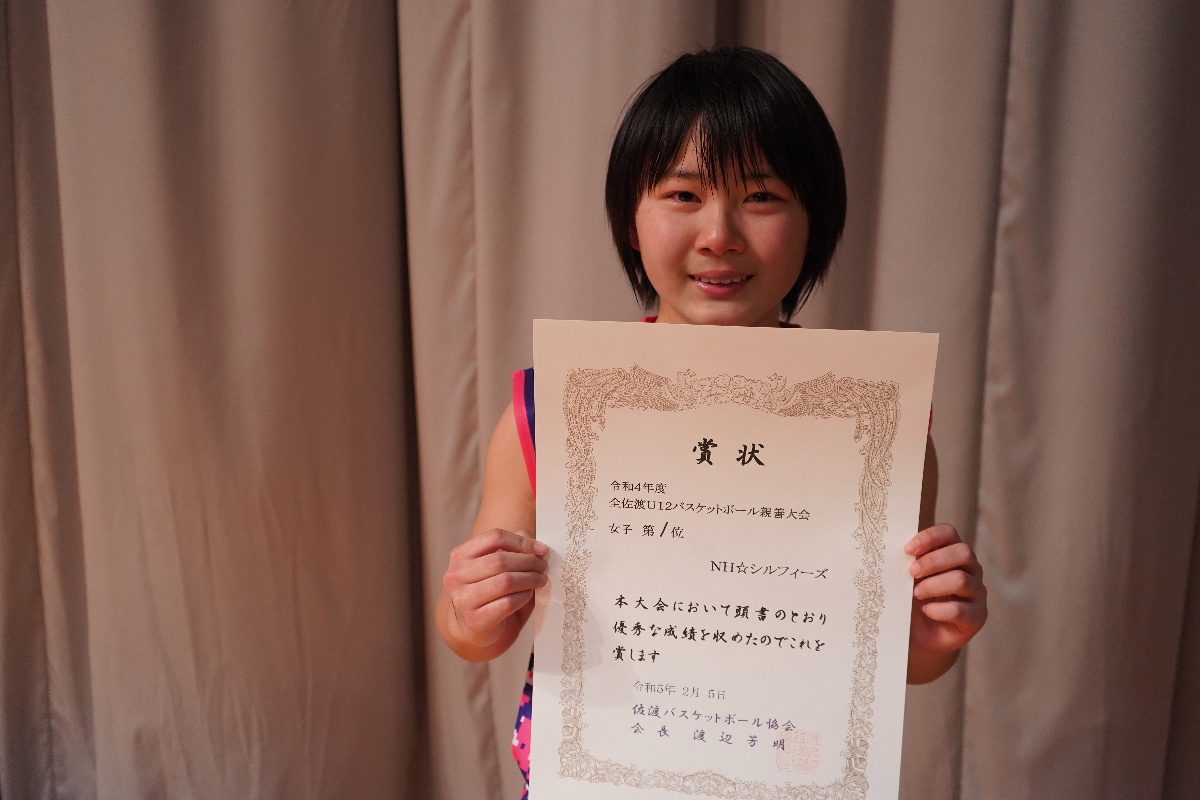 賞状
令和4年度
全佐渡U12バスケットボール親善大会
女子 第1位
NH☆シルフィーズ
本大会において頭書のとおり
優秀な成績を収めたのでこれを
賞します
令和5年 2月 5日
佐渡バスケットボール協会
会長 渡辺芳明